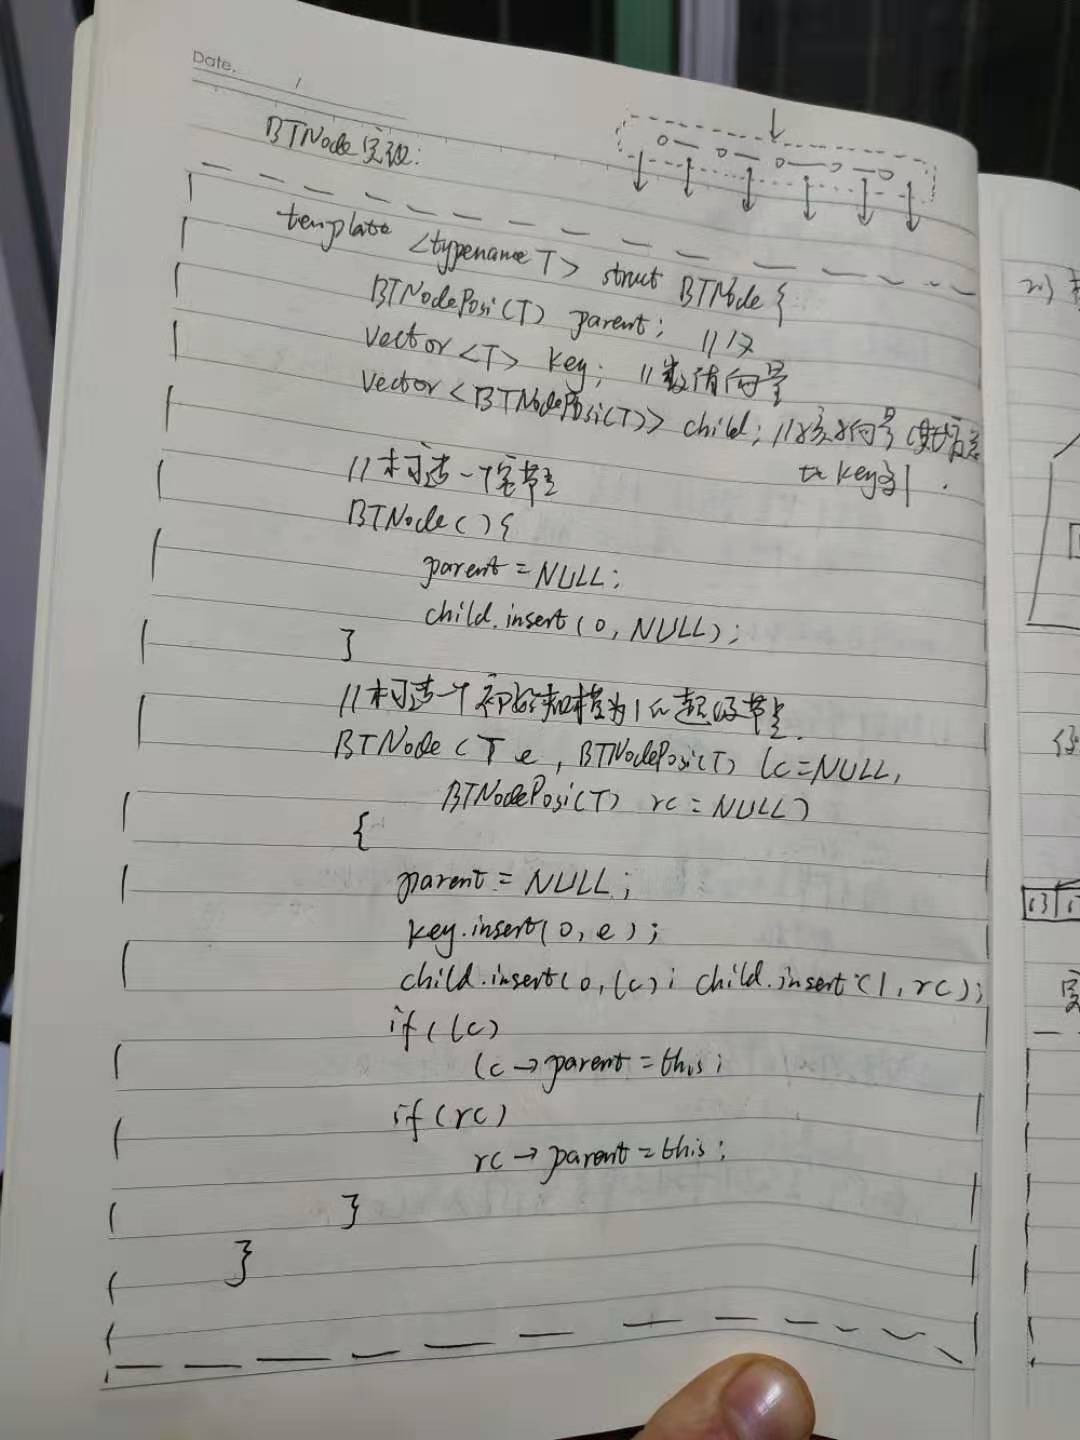 Date. /
BTNode实现:
template <typename T> struct BTNode {
BTNodePosi(T) parent; //父
Vector<T> key; //数值向量
Vector<BTNodePosi(T)>> child; //孩子向量(其长总
比key多1.
//构造一个空节点
BTNode(){
parent = NULL;
child.insert(0, NULL);
}
//构造一个初始规模为1的超级节点.
BTNode(T e, BTNodePosi(T) lc=NULL,
BTNodePosi(T) rc = NULL)
{
parent = NULL;
key.insert(0, e);
child.insert(0, lc); child.insert(1, rc);
if(lc)
lc→parent = this;
if(rc)
rc→parent = this;
}
}
13